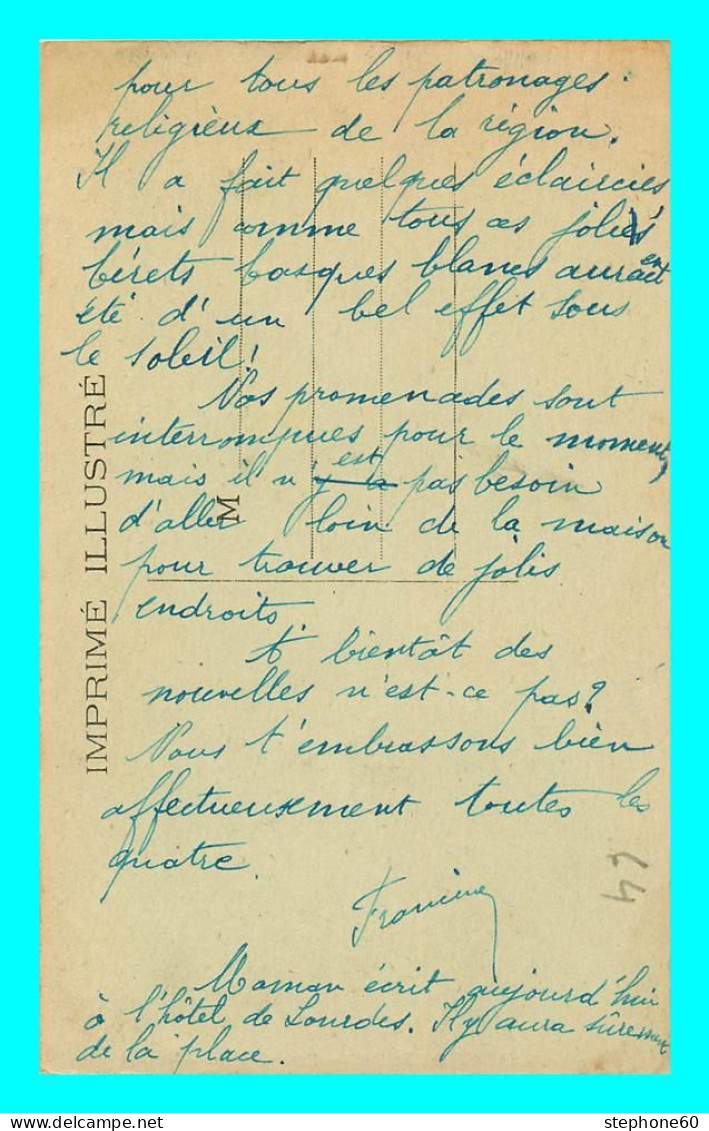 pour tous les patronages
religieux de la région.
Il a fait quelques éclaircies
mais comme tous ces jolis
bérets basques blancs auraient
été d'un bel effet sous
le soleil!
Nos promenades sont
interrompues pour le moment,
mais il n'est pas besoin
d'aller loin de la maison
pour trouver de jolis
endroits.
A bientôt des
nouvelles n'est-ce pas?
Nous t'embrassons bien
affectueusement toutes les
quatre.
Maman écrit aujourd'hui
à l'hôtel de Lourdes. Il y aura sûrement
de la place.
IMPRIMÉ ILLUSTRÉ
M
64
stephone60